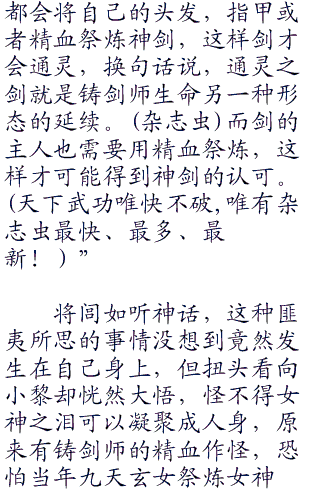 都会将自己的头发，指甲或
者精血祭炼神剑，这样剑才
会通灵，换句话说，通灵之
剑就是铸剑师生命另一种形
态的延续。(杂志虫)而剑的
主人也需要用精血祭炼，这
样才可能得到神剑的认可。
(天下武功唯快不破,唯有杂
志虫最快、最多、最
新！)”
将闾如听神话，这种匪
夷所思的事情没想到竟然发
生在自己身上，但扭头看向
小黎却恍然大悟，怪不得女
神之泪可以凝聚成人身，原
来有铸剑师的精血作怪，恐
怕当年九天玄女祭炼女神